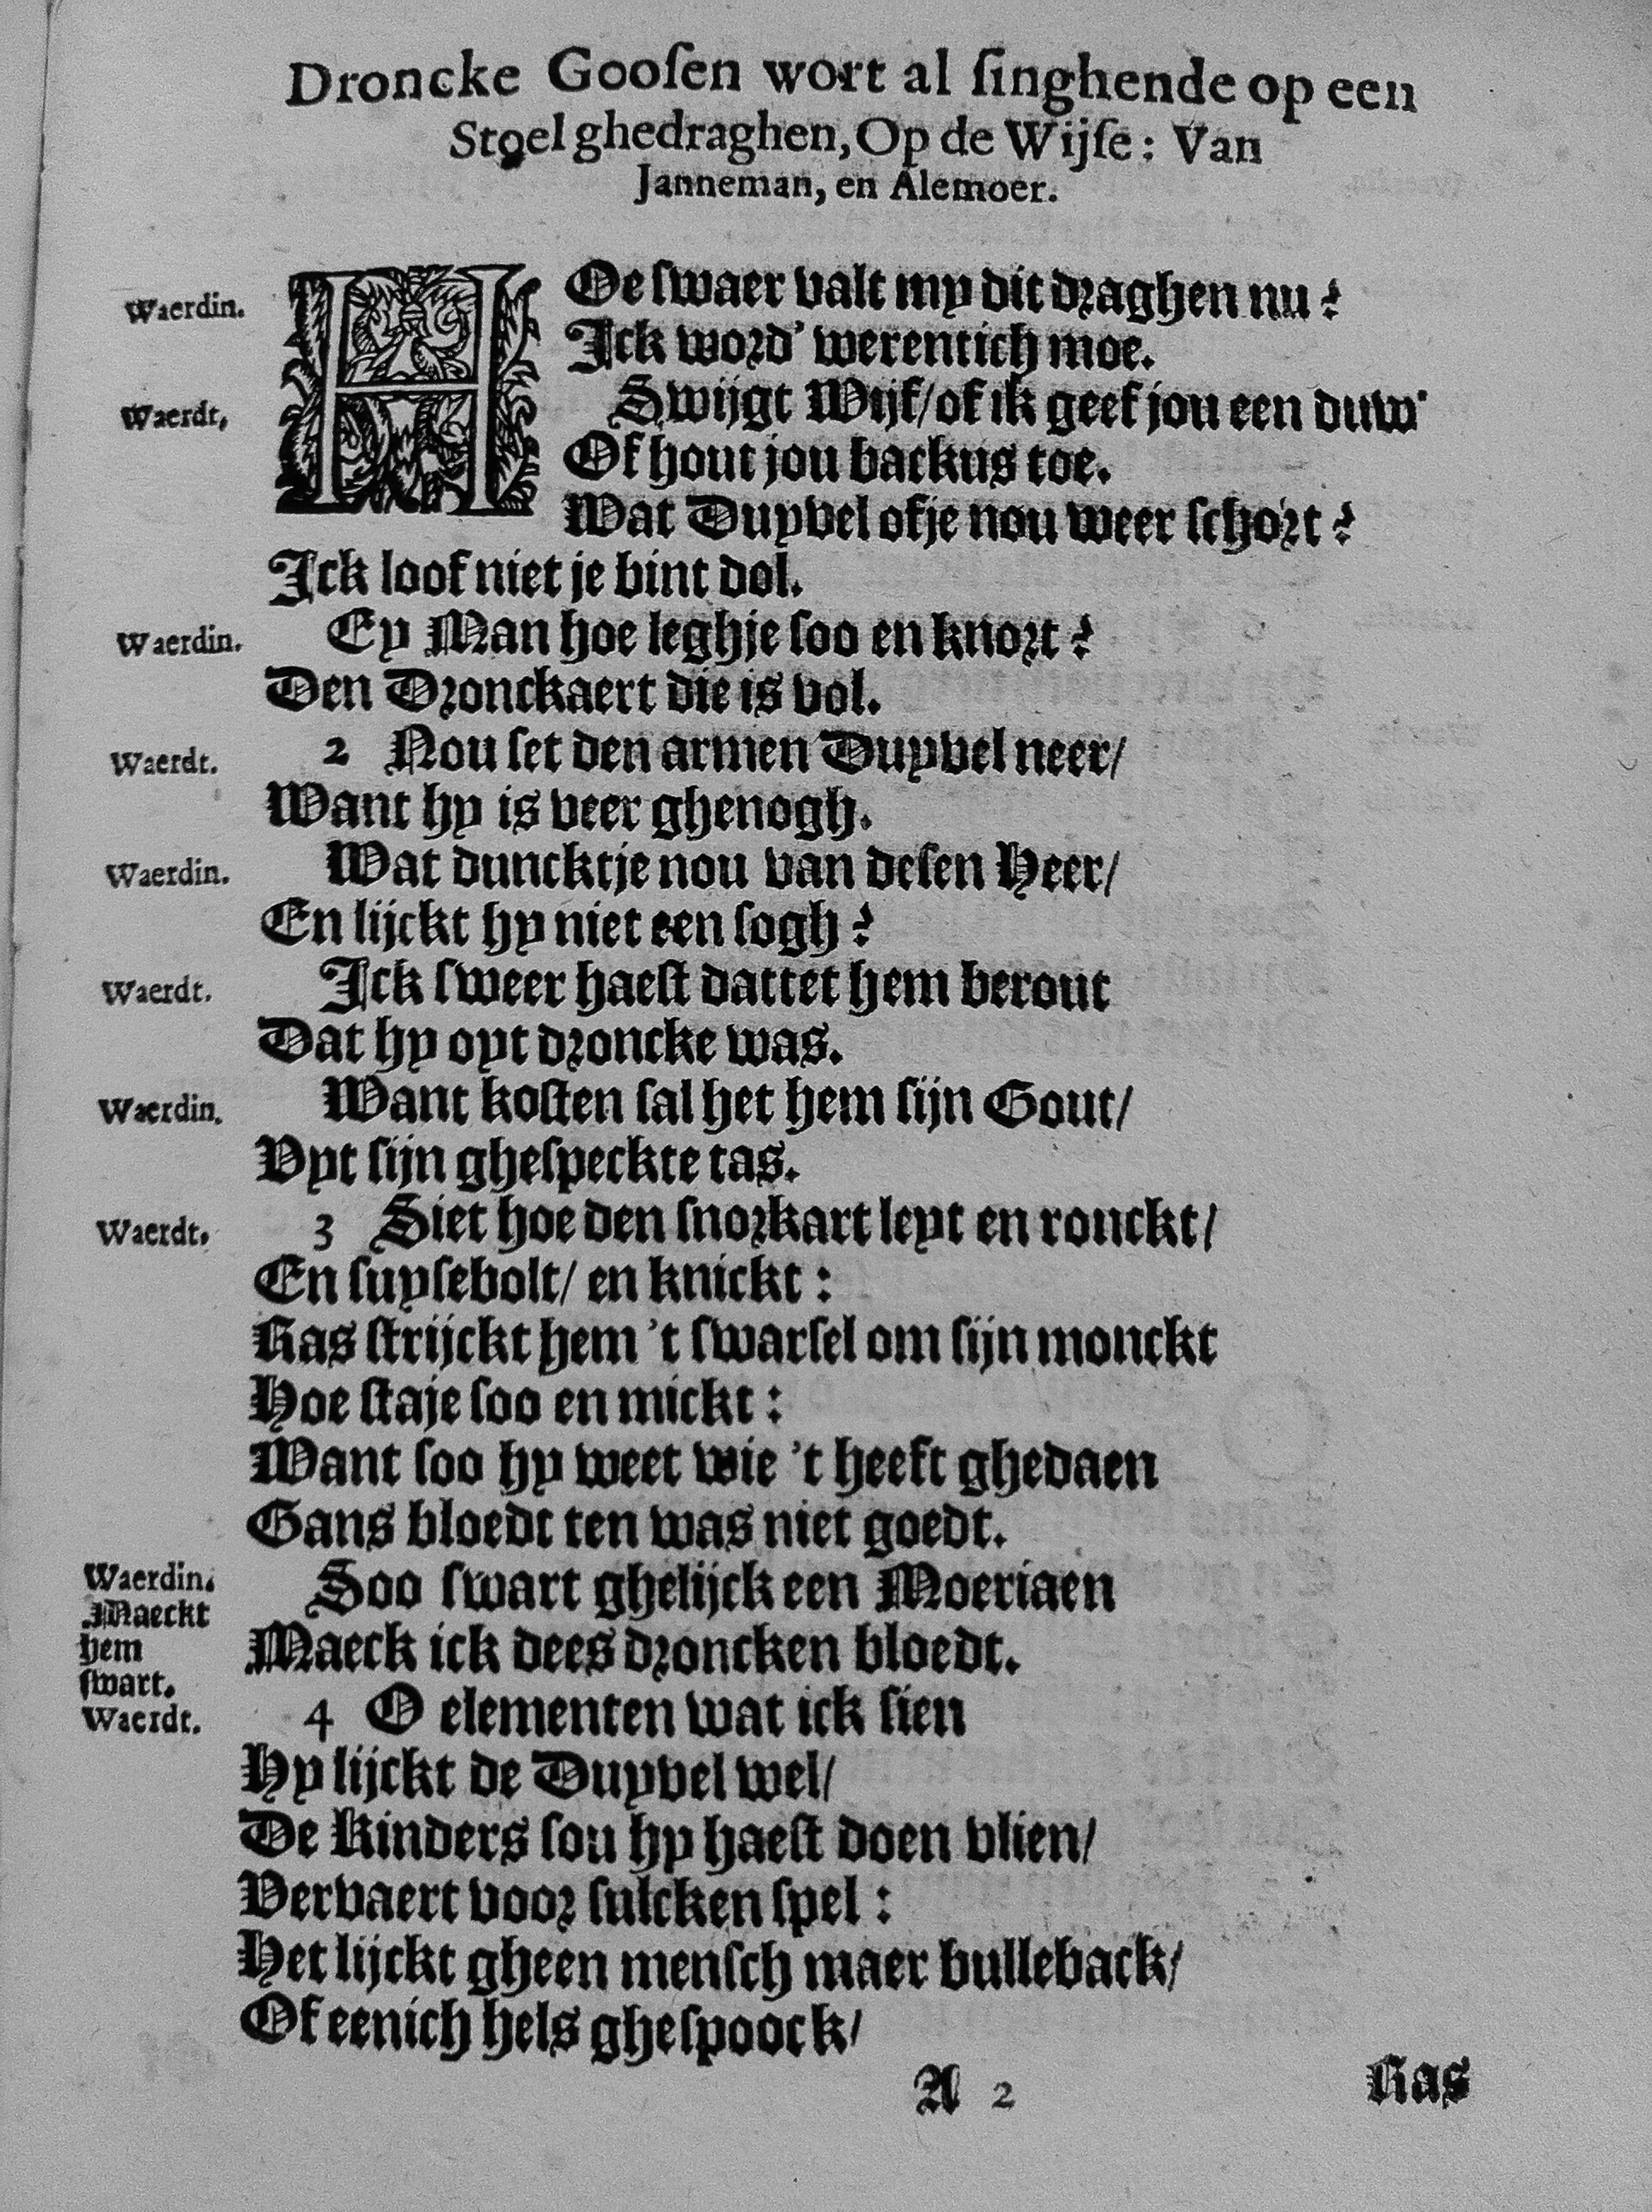 Droncke Gooſen wort al ſinghende op een
Stoel ghedraghen, Op de Wijſe: Van
Janneman, en Alemoer.
Waerdin. HOe ſwaer valt my dit draghen nu?
Ick word' werentich moe.
Waerdt, Swijgt Wijf/of ik geef jou een duw'
Of hout jou backus toe.
Wat Duyvel ofje nou weer ſchort?
Ick loof niet je bint dol.
Waerdin. Ey Man hoe leghje ſoo en knort?
Den Dronckaert die is vol.
Waerdt. 2 Nou ſet den armen Duyvel neer/
Want hy is veer ghenogh.
Waerdin. Wat duncktje nou van deſen Heer/
En lijckt hy niet een ſogh?
Waerdt. Ick ſweer haeſt dattet hem berout
Dat hy oyt droncke was.
Waerdin. Want koſten ſal het hem ſijn Gout/
Vyt ſijn gheſpeckte tas.
Waerdt. 3 Siet hoe den ſnorkart leyt en ronckt/
En ſuyſebolt/ en knickt:
Ras ſtrijckt hem 't ſwarſel om ſijn monckt
Hoe ſtaje ſoo en mickt:
Want ſoo hy weet wie 't heeft ghedaen
Gans bloedt ten was niet goedt.
Waerdin. Soo ſwart ghelijck een Moeriaen
Maeckt
hem Maeck ick dees droncken bloedt.
ſwart.
Waerdt. 4 O elementen wat ick ſien
Hy lijckt de Duyvel wel/
De Kinders ſou hy haeſt doen vlien/
Vervaert voor ſulcken ſpel:
Het lijckt gheen menſch maer bulleback/
Of eenich hels gheſpoock/
A 2 Ras